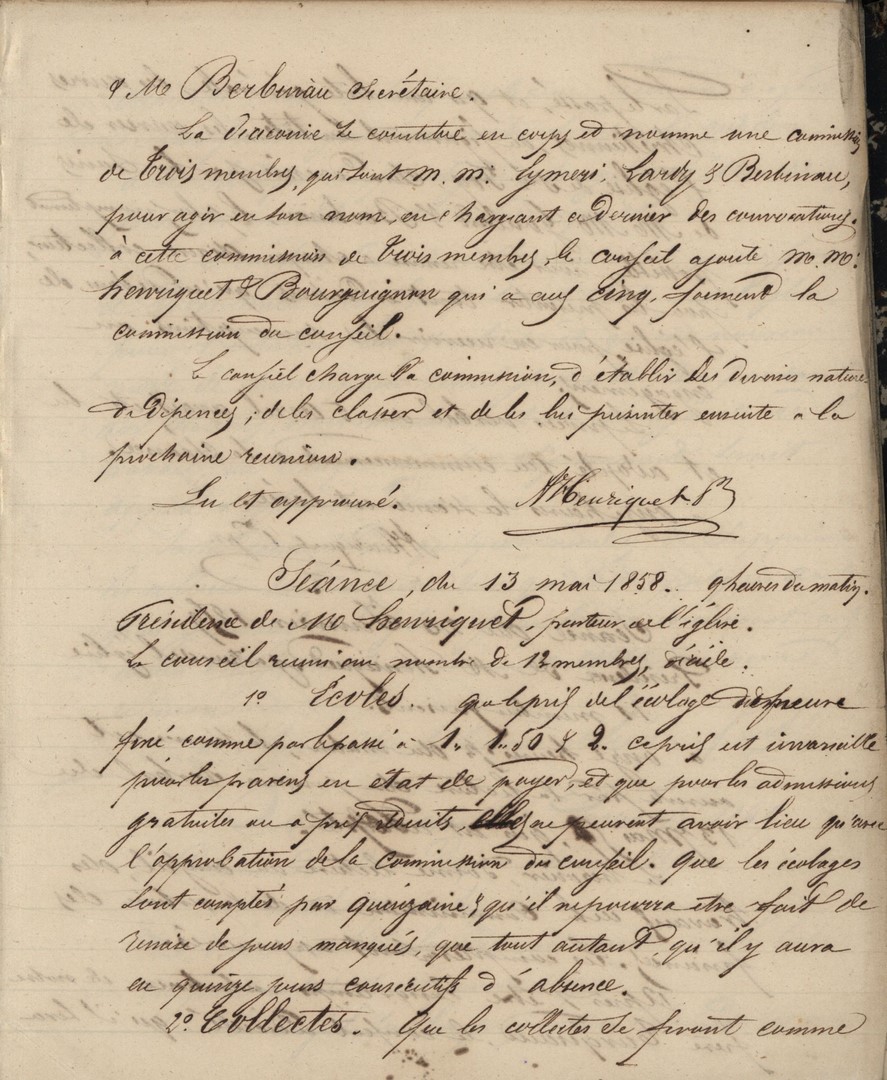 & Mr Berbineau Secrétaire.
La diaconie se constitue en corps et nomme une commission
de trois membres, qui sont M. M. Eymeri, Lardy & Berbineau,
pour agir en son nom, en chargeant ce dernier des convocations.
à cette commission de trois membres, le conseil ajoute M. M.
henriquet & Bourguignon qui a eux cinq, forment la
commission du conseil.
Le conseil charge la commission, d'établir les diverses natures
de dépences, de les classer et de les lui présenter ensuite a la
prochaine reunion.
Lu et approuvé. Henriquet
Séance, du 13 mai 1858. 9 heures du matin.
Présidence de Mr henriquet, pasteur de l'église.
Le conseil reuni au nombre de 12 membres, décide.
1o Écoles. que le prix de l'écolage demeure
fixé comme par le passé à 1. 1.50 & 2. ce prix est invariable
pour les parens en état de payer, et que pour les admissions
gratuites ou a prix réduits, ne peuvent avoir lieu qu'avec
l'approbation de la commission du conseil. que les écolages
sont comptés par quinzaine & qu'il ne pourra etre fait de
remise de jours manqués, que tout autant, qu'il y aura
eu quinze jours consécutifs d'absence.
2o Collectes. Que les collectes se feront comme